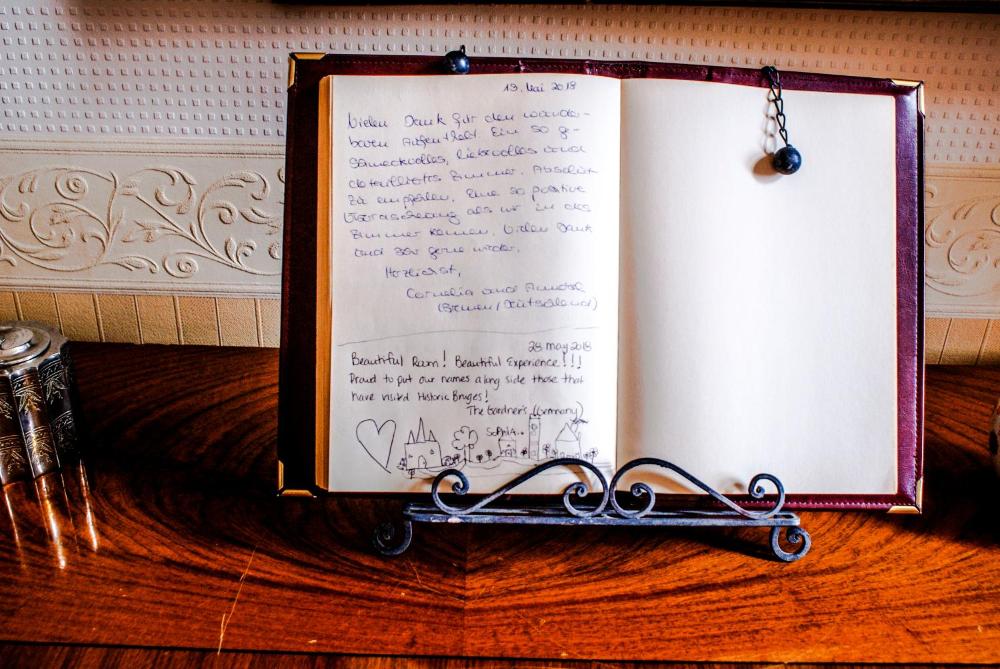 19. Mai 2018
Vielen Dank für den wunder-
baren Aufenthalt. Ein so ge-
schmackvolles, liebevolles und
detailliertes Zimmer. Absolut
zu empfehlen. Eine so positive
Überraschung als wir in das
Zimmer kamen. Vielen Dank
und sehr gerne wieder.
Herzlichst,
Cornelia und
(Bremen/Deutschland)
28 may 2018
Beautiful Room! Beautiful Experience!!!
Proud to put our names along side those that
have visited Historic Bruges!
The Gardner's (Germany)
SOPHIA